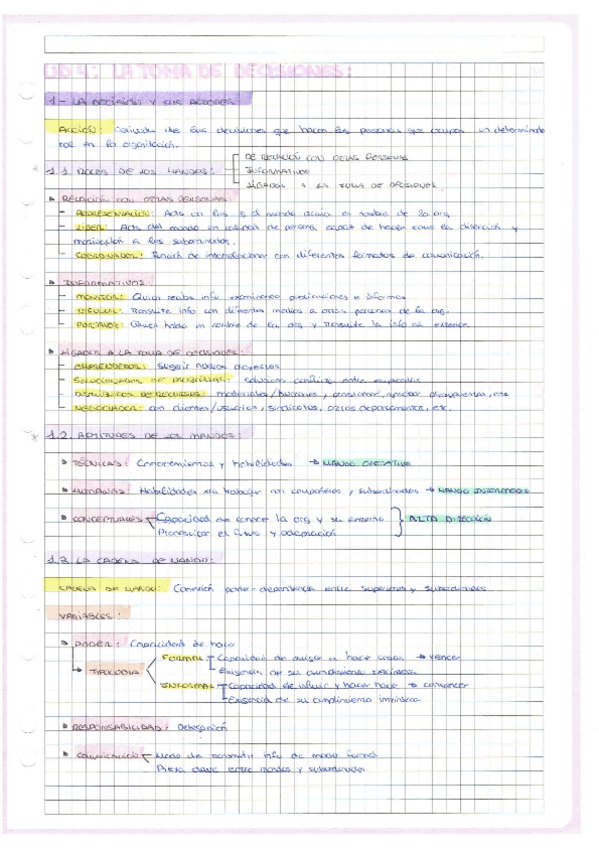 UD 4: LA TOMA DE DECISIONES:
1.- LA DECISIÓN Y SUS ACTORES
ACCIÓN: Conjunto de las decisiones que hacen las personas que ocupan un determinado
rol en la organización.
1.1. ROLES DE LOS MANDOS:
DE RELACIÓN CON OTRAS PERSONAS
INFORMATIVOS
LIGADOS A LA TOMA DE DECISIONES.
RELACIÓN CON OTRAS PERSONAS:
- REPRESENTATIVO: Acts en las q el mando actúa en nombre de la org.
- LÍDER: Acts del mando en calidad de persona capaz de hacer la dirección y
motivación a los subordinados.
- COORDINADOR: Función de interrelacionar con diferentes formatos de comunicación.
INFORMATIVOS:
- MONITOR: Quien recibe info examinando publicaciones e informes
- DIFUSOR: Transmite info con diferentes medios a otras personas de la org.
- PORTAVOZ: Quien habla en nombre de la org y transmite la info al exterior.
LIGADOS A LA TOMA DE DECISIONES:
- EMPRENDEDOR: Sugerir nuevos proyectos
- SOLUCIONADOR DE PROBLEMAS: solucionar conflictos entre
- DISTRIBUIDOR DE RECURSOS: materiales/humanos y aprobar presupuestos, etc
- NEGOCIADOR: con clientes/usuarios, sindicatos, otros departamentos, etc.
1.2. APTITUDES DE LOS MANDOS:
TÉCNICAS: Conocimientos y habilidades → MANDO OPERATIVO
HUMANAS: Habilidades xa trabajar con compañeros y subordinados → MANDO INTERMEDIO
CONCEPTUALES Capacidad de conocer la org y su entorno
Pronosticar el futuro y adecuación
ALTA DIRECCIÓN
1.3. LA CADENA DE MANDO:
CADENA DE MANDO: Conexión poder-dependencia entre superiores y subordinados
VARIABLES:
PODER: Capacidad de hacer
TIPOLOGÍA
FORMAL Capacidad de a hacer cosas → vencer
Exigencia de su cumplimiento
INFORMAL Capacidad de influir y hacer hacer → convencer
Exigencia de su cumplimiento
RESPONSABILIDAD: Delegación
COMUNICACIÓN Modo de transmitir info de modo formal
Pieza clave entre mandos y subordinados